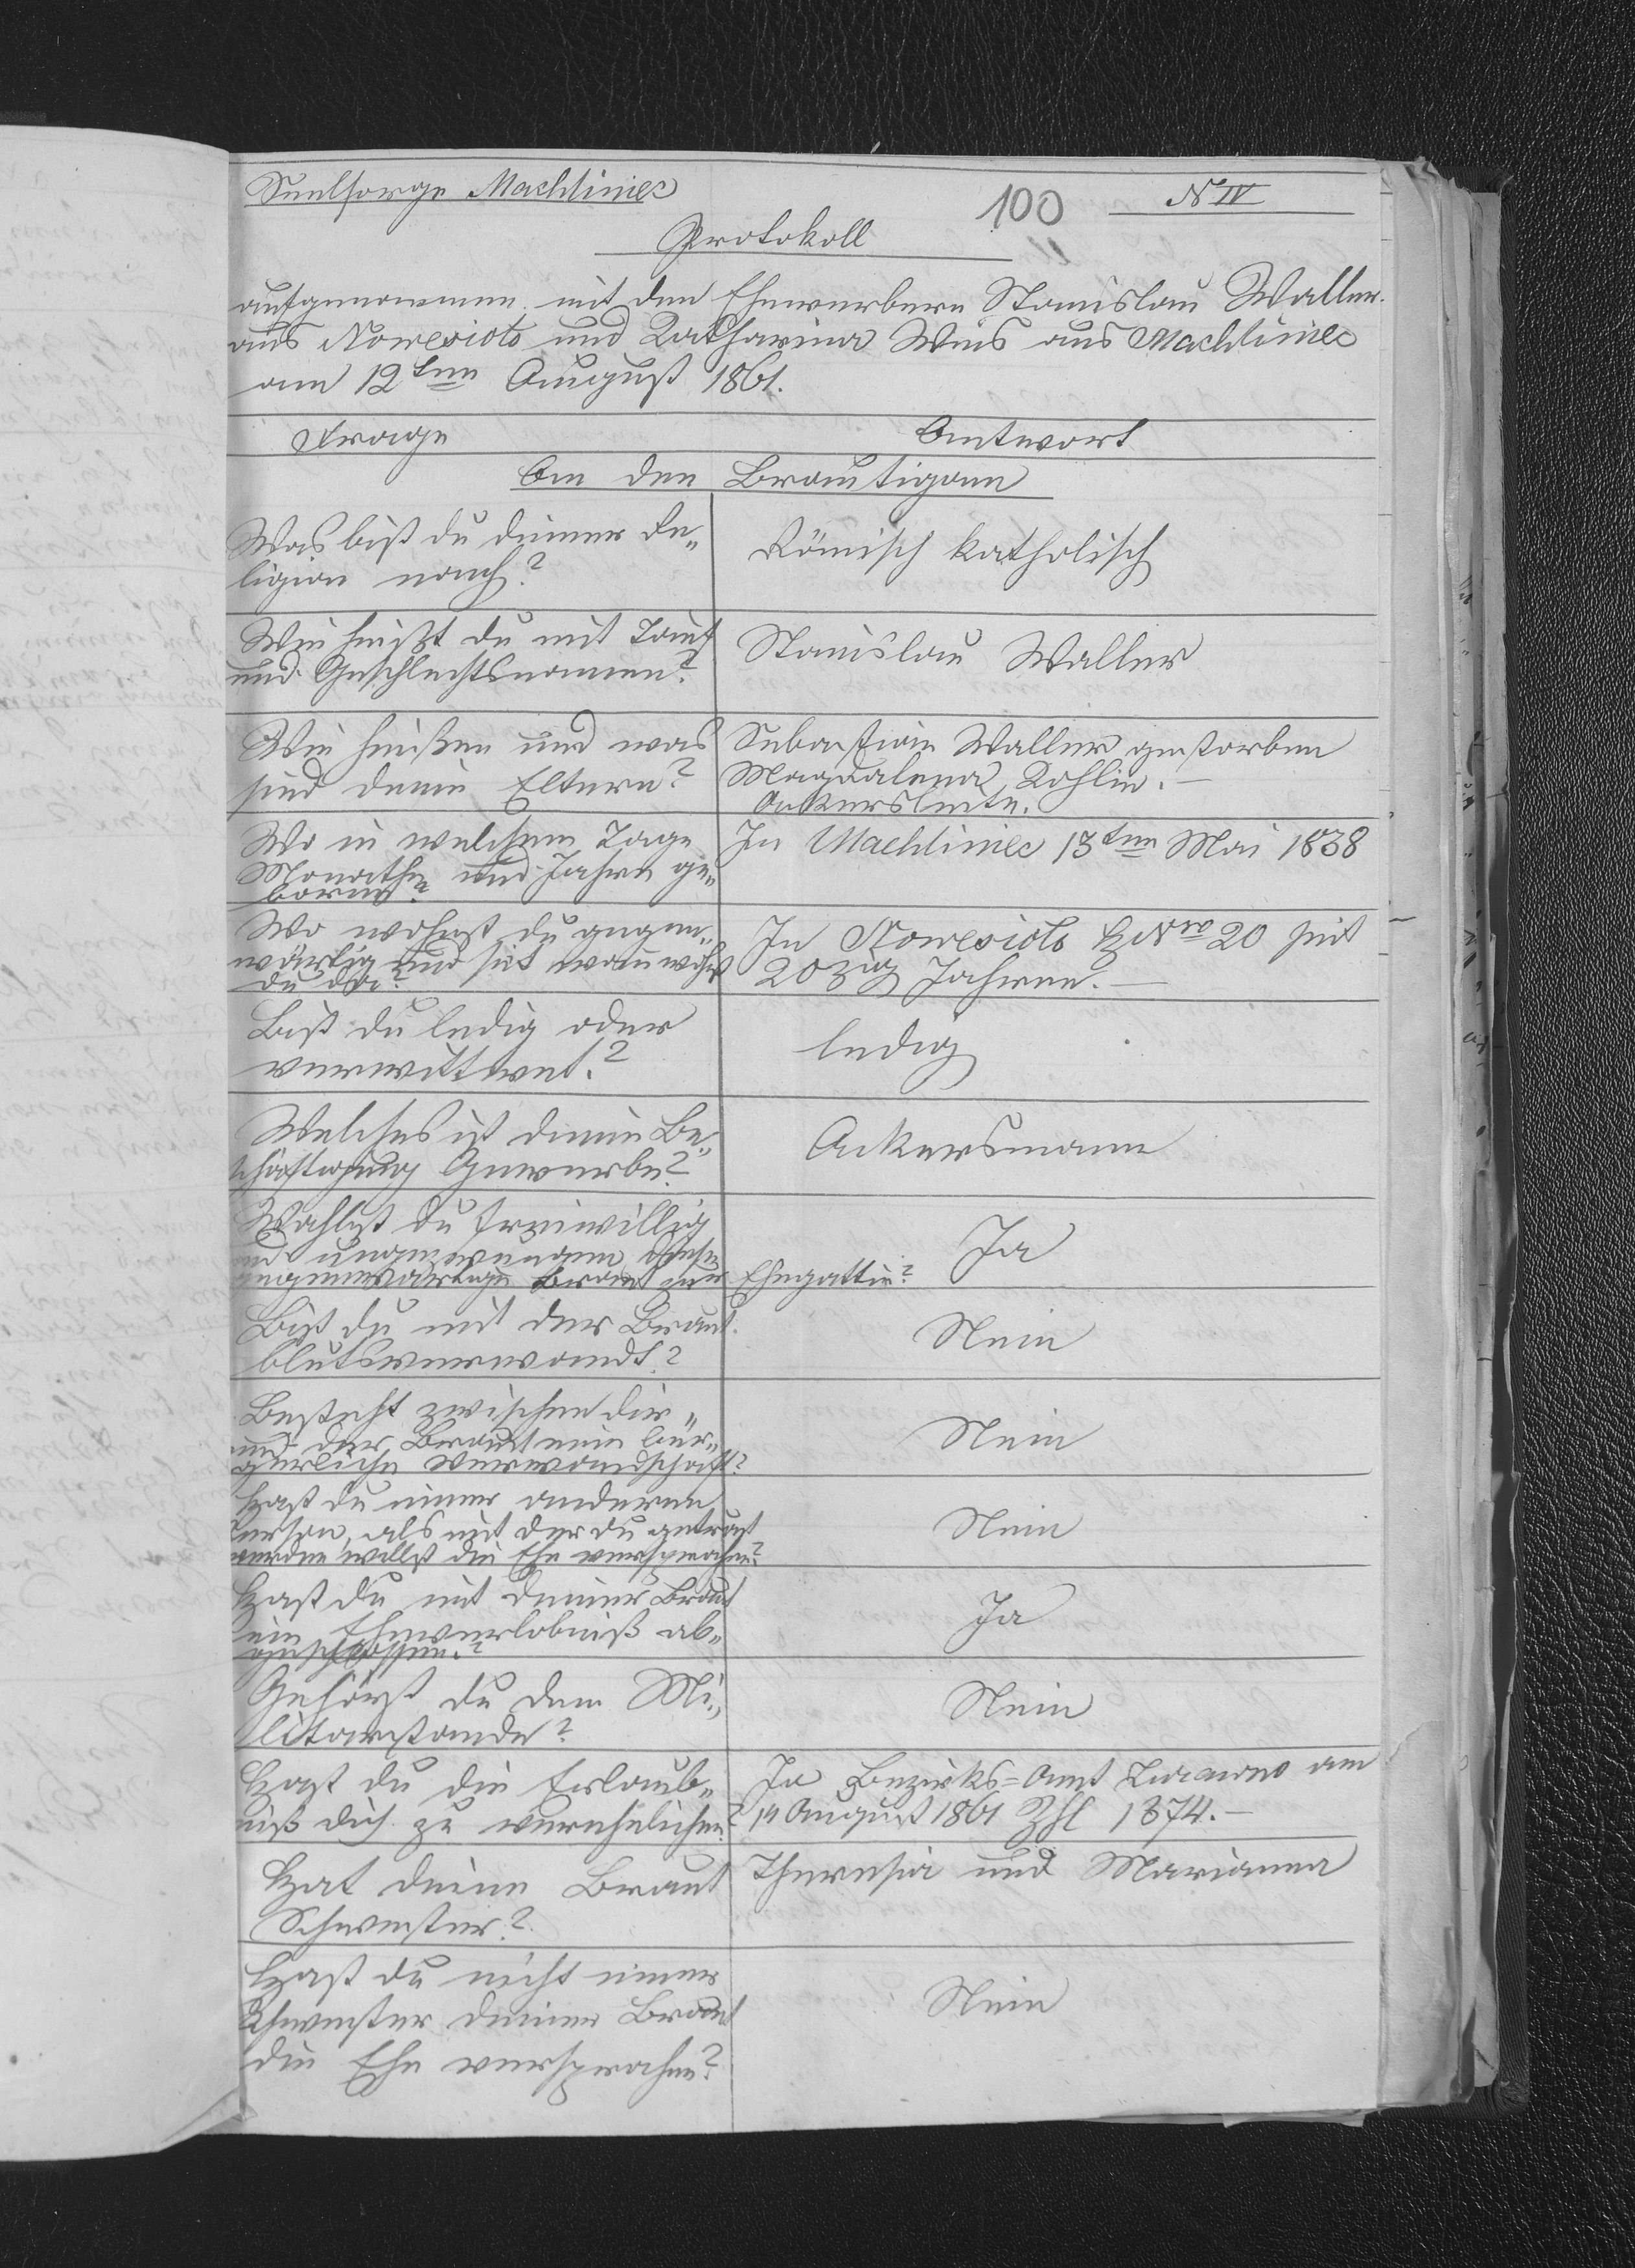 Seelsorge Machliniec
100
N IV
Protokoll
aufgenommen mit den Ehewerbern Stanislau Waller
aus Nowesioło und Katharina Weis aus Machliniec
am 12ten August 1861.
Frage
Antwort
An den Brautigam
Was bist du deiner Re„
ligion nach?
Römisch katholisch
Wie heißt du mit Tauf
und Geschlechtsnamen?
Stanislau Waller
Wie heißen und was
sind deine Eltern?
Sebastian Waller gestorben
Magdalena Kohlin. —
Ackersleute.
Wo in welchem Tage
Monathe und Jahre ge„
boren?
In Machliniec 13ten Mai 1838
Wo wohnst du gegen„
wärtig und seit wann wohnst
du da?
In Nowesioło HNro 20 seit
20zig Jahren. —
Bist du ledig oder
verwittwet?
ledig
Welches ist deine Be„
schäftigung Gewerbe?
Ackersmann
Wahlest du freiwillig
und ungezwungen diese
gegenwärtige Braut zur Ehegattin?
Ja
Bist du mit der Braut
blutsverwandt?
Nein
Besteht zwischen dir „
und der Braut eine bür„
gerliche Verwandschaft?
Nein
Hast du einer anderen
Person, als mit der du getraut
werden willst die Ehe versprochen?
Nein
Hast du mit deiner Braut
ein Eheverlobniß ab„
geschlossen?
Ja
Gehörst du dem Mi„
litarstande?
Nein
Hast du die Erlaub„
niß dich zu verehelichen?
Ja Bezirks=Amt Żurawno am
14 August 1861 Zhl 1374. —
Hat deine Braut
Schwester?
Theresia und Marianna
Hast du nicht einer
Schwester deiner Braut
die Ehe versprochen?
Nein